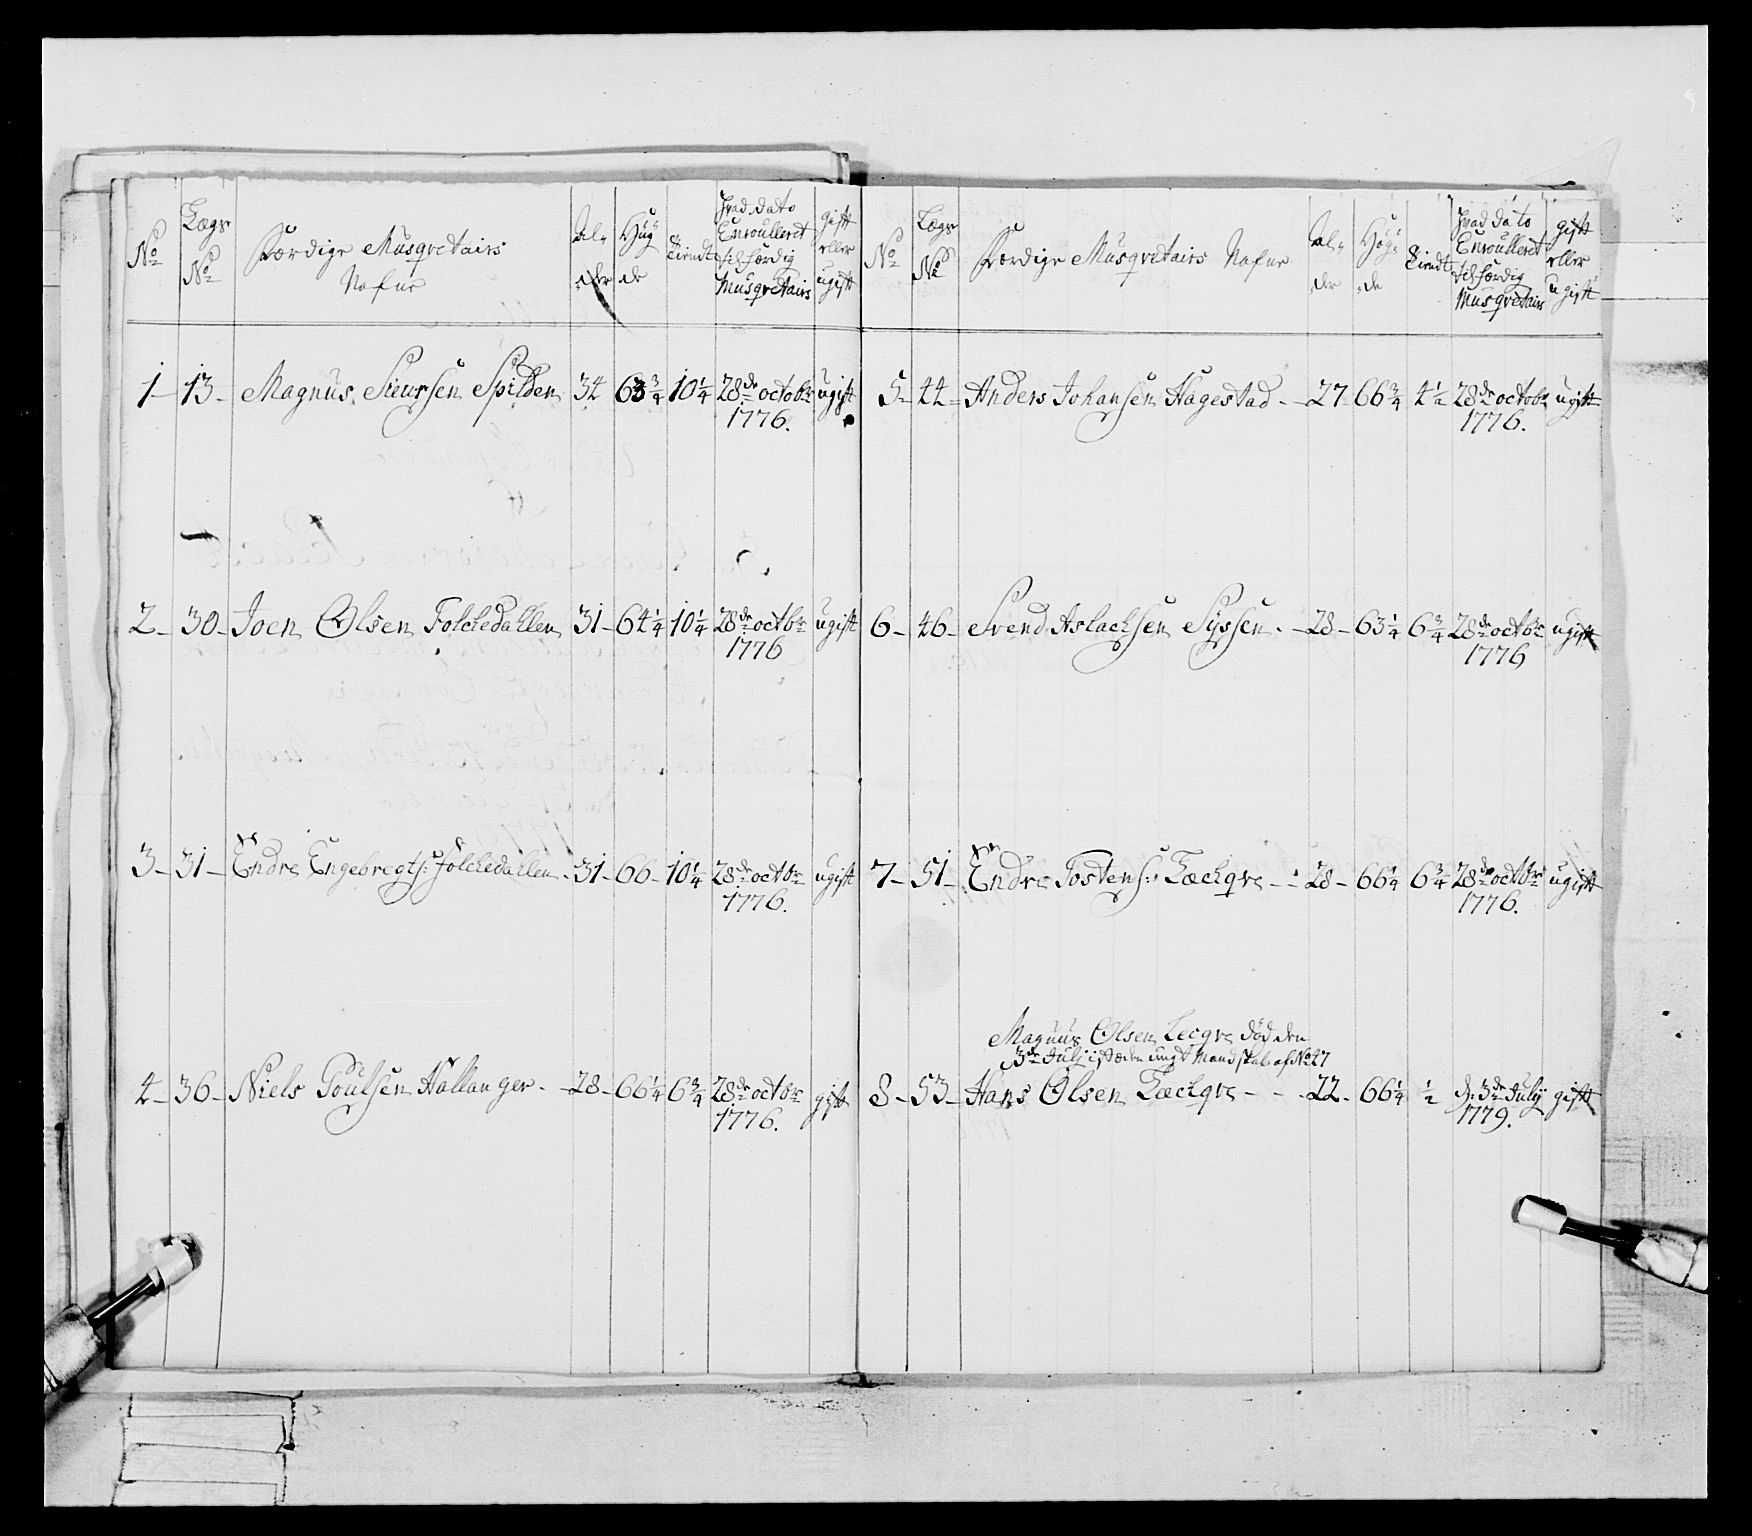 No
Lægs No
Færdige Musqvetairs Nafne
Al-der
Høy-de
Tiendt
Hvad dato Enroulleret til færdig Musqvetairs
gift eller ugift
1 - 13 - Magnus Siursen Spilden 34 63 3/4 10 1/4 28de octobr 1776. ugift
2 - 30 - Joen Olsen Folckedahlen 31 - 64 1/4 10 1/4 28de octbr 1776 ugift
3 - 31 - Endre Engebregts: Folckedahlen - 31 - 66 - 10 1/4 28de octbr 1776. ugift
4 - 36 - Niels Poulsen Hallanger - 28 - 66 1/4 6 3/4 28de octbr 1776. gift
No
Lægs No
Færdige Musqvetairs Nafne
Al-der
Høy-de
Tiendt
Hvad dato Enroulleret til færdig Musqvetairs
gift eller ugift
5 - 44 - Anders Johansen Hagestad - 27 66 3/4 4 1/2 28de octobr 1776. ugift
6 - 46 - Svend Aslachsen Syssen - 28 - 63 1/4 6 3/4 28de octbr 1776 ugift
7 - 51 - Endre Tostens: Læcqve - 28 - 66 1/4 6 3/4 28de octbr 1776. ugift
Magnus Olsen Lecqve død den
3de Julj istæden ungt Mandskab af No 47
8 - 53 - Hans Olsen Læcqve - - 22 - 66 1/4 1/2 d: 3de July 1779. gift